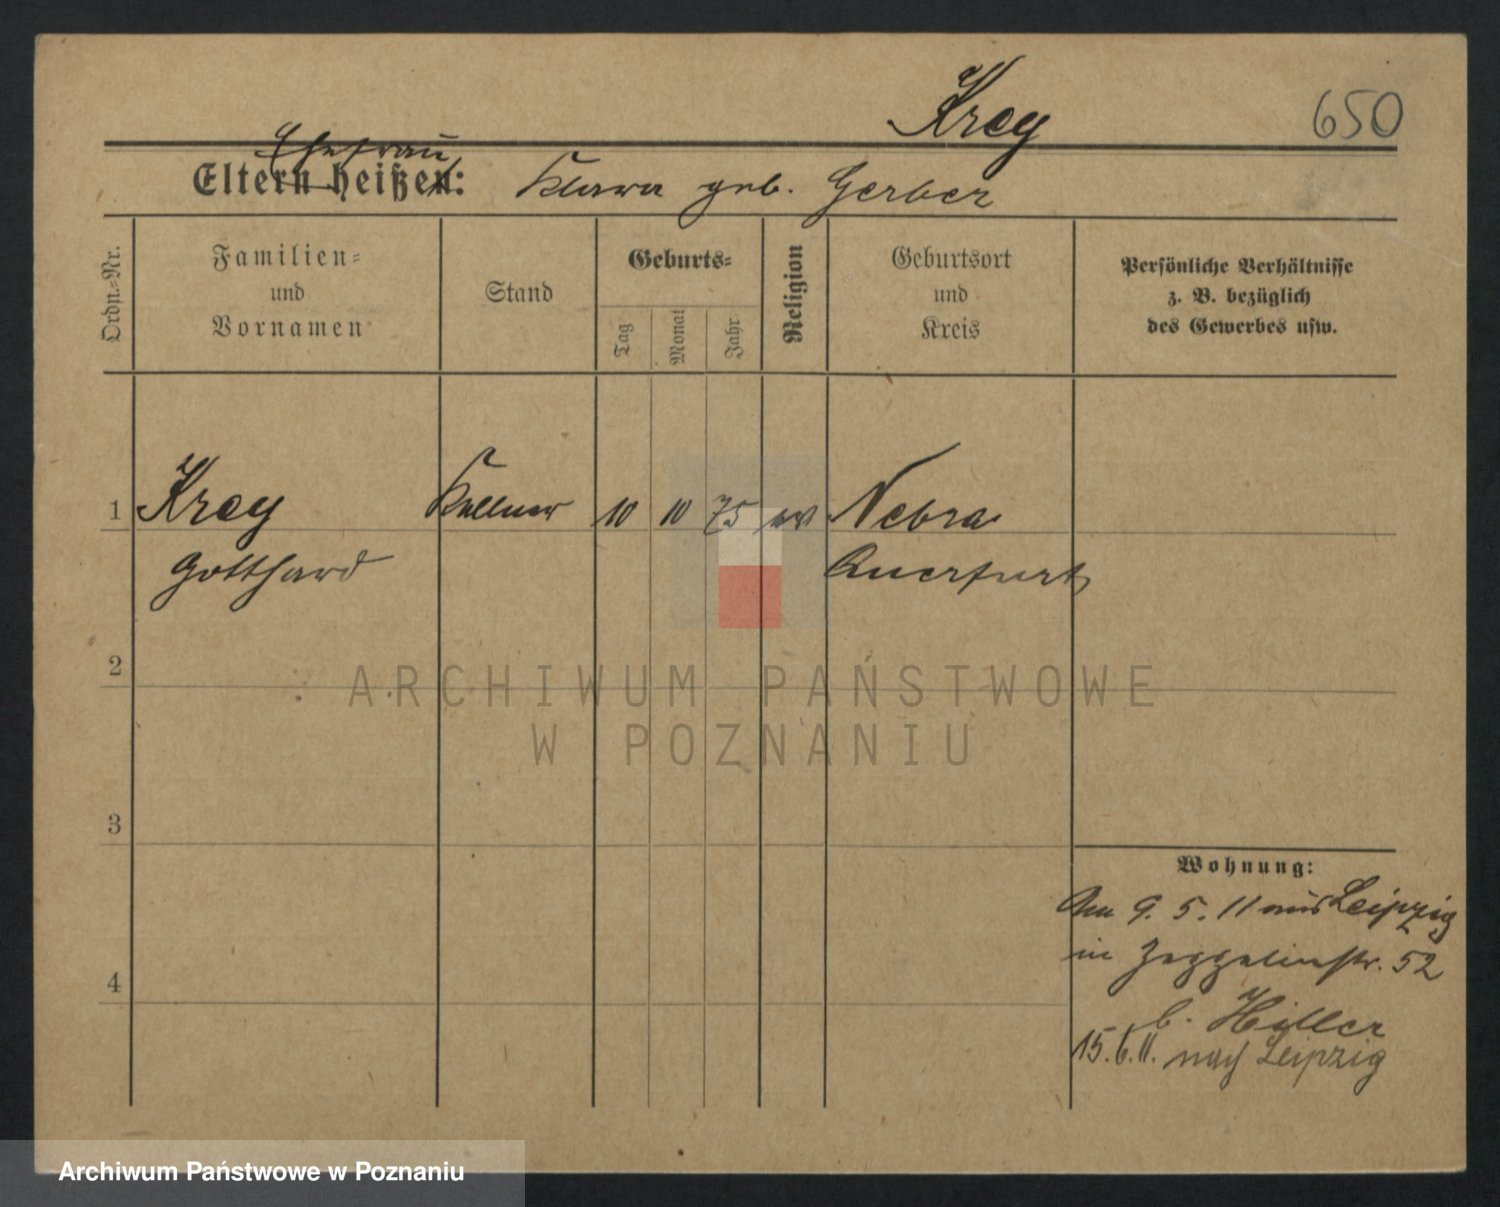 Krey
650
Ehefrau
Eltern heißen: Klara geb. Gerber
Ordn.-Nr.
Familien-
und
Vornamen
Stand
Geburts-
Tag
Monat
Jahr
Religion
Geburtsort
und
Kreis
Persönliche Verhältnisse
z. B. bezüglich
des Gewerbes usw.
1 Krey Kellner 10 10 75 ev Nebra
Gotthard Querfurt
2
3
4
Wohnung:
Am 9. 5. 11 aus Leipzig
in Zeppelinstr. 52
b. Hiller
15.6.11. nach Leipzig
ARCHIWUM PAŃSTWOWE
W POZNANIU
Archiwum Państwowe w Poznaniu